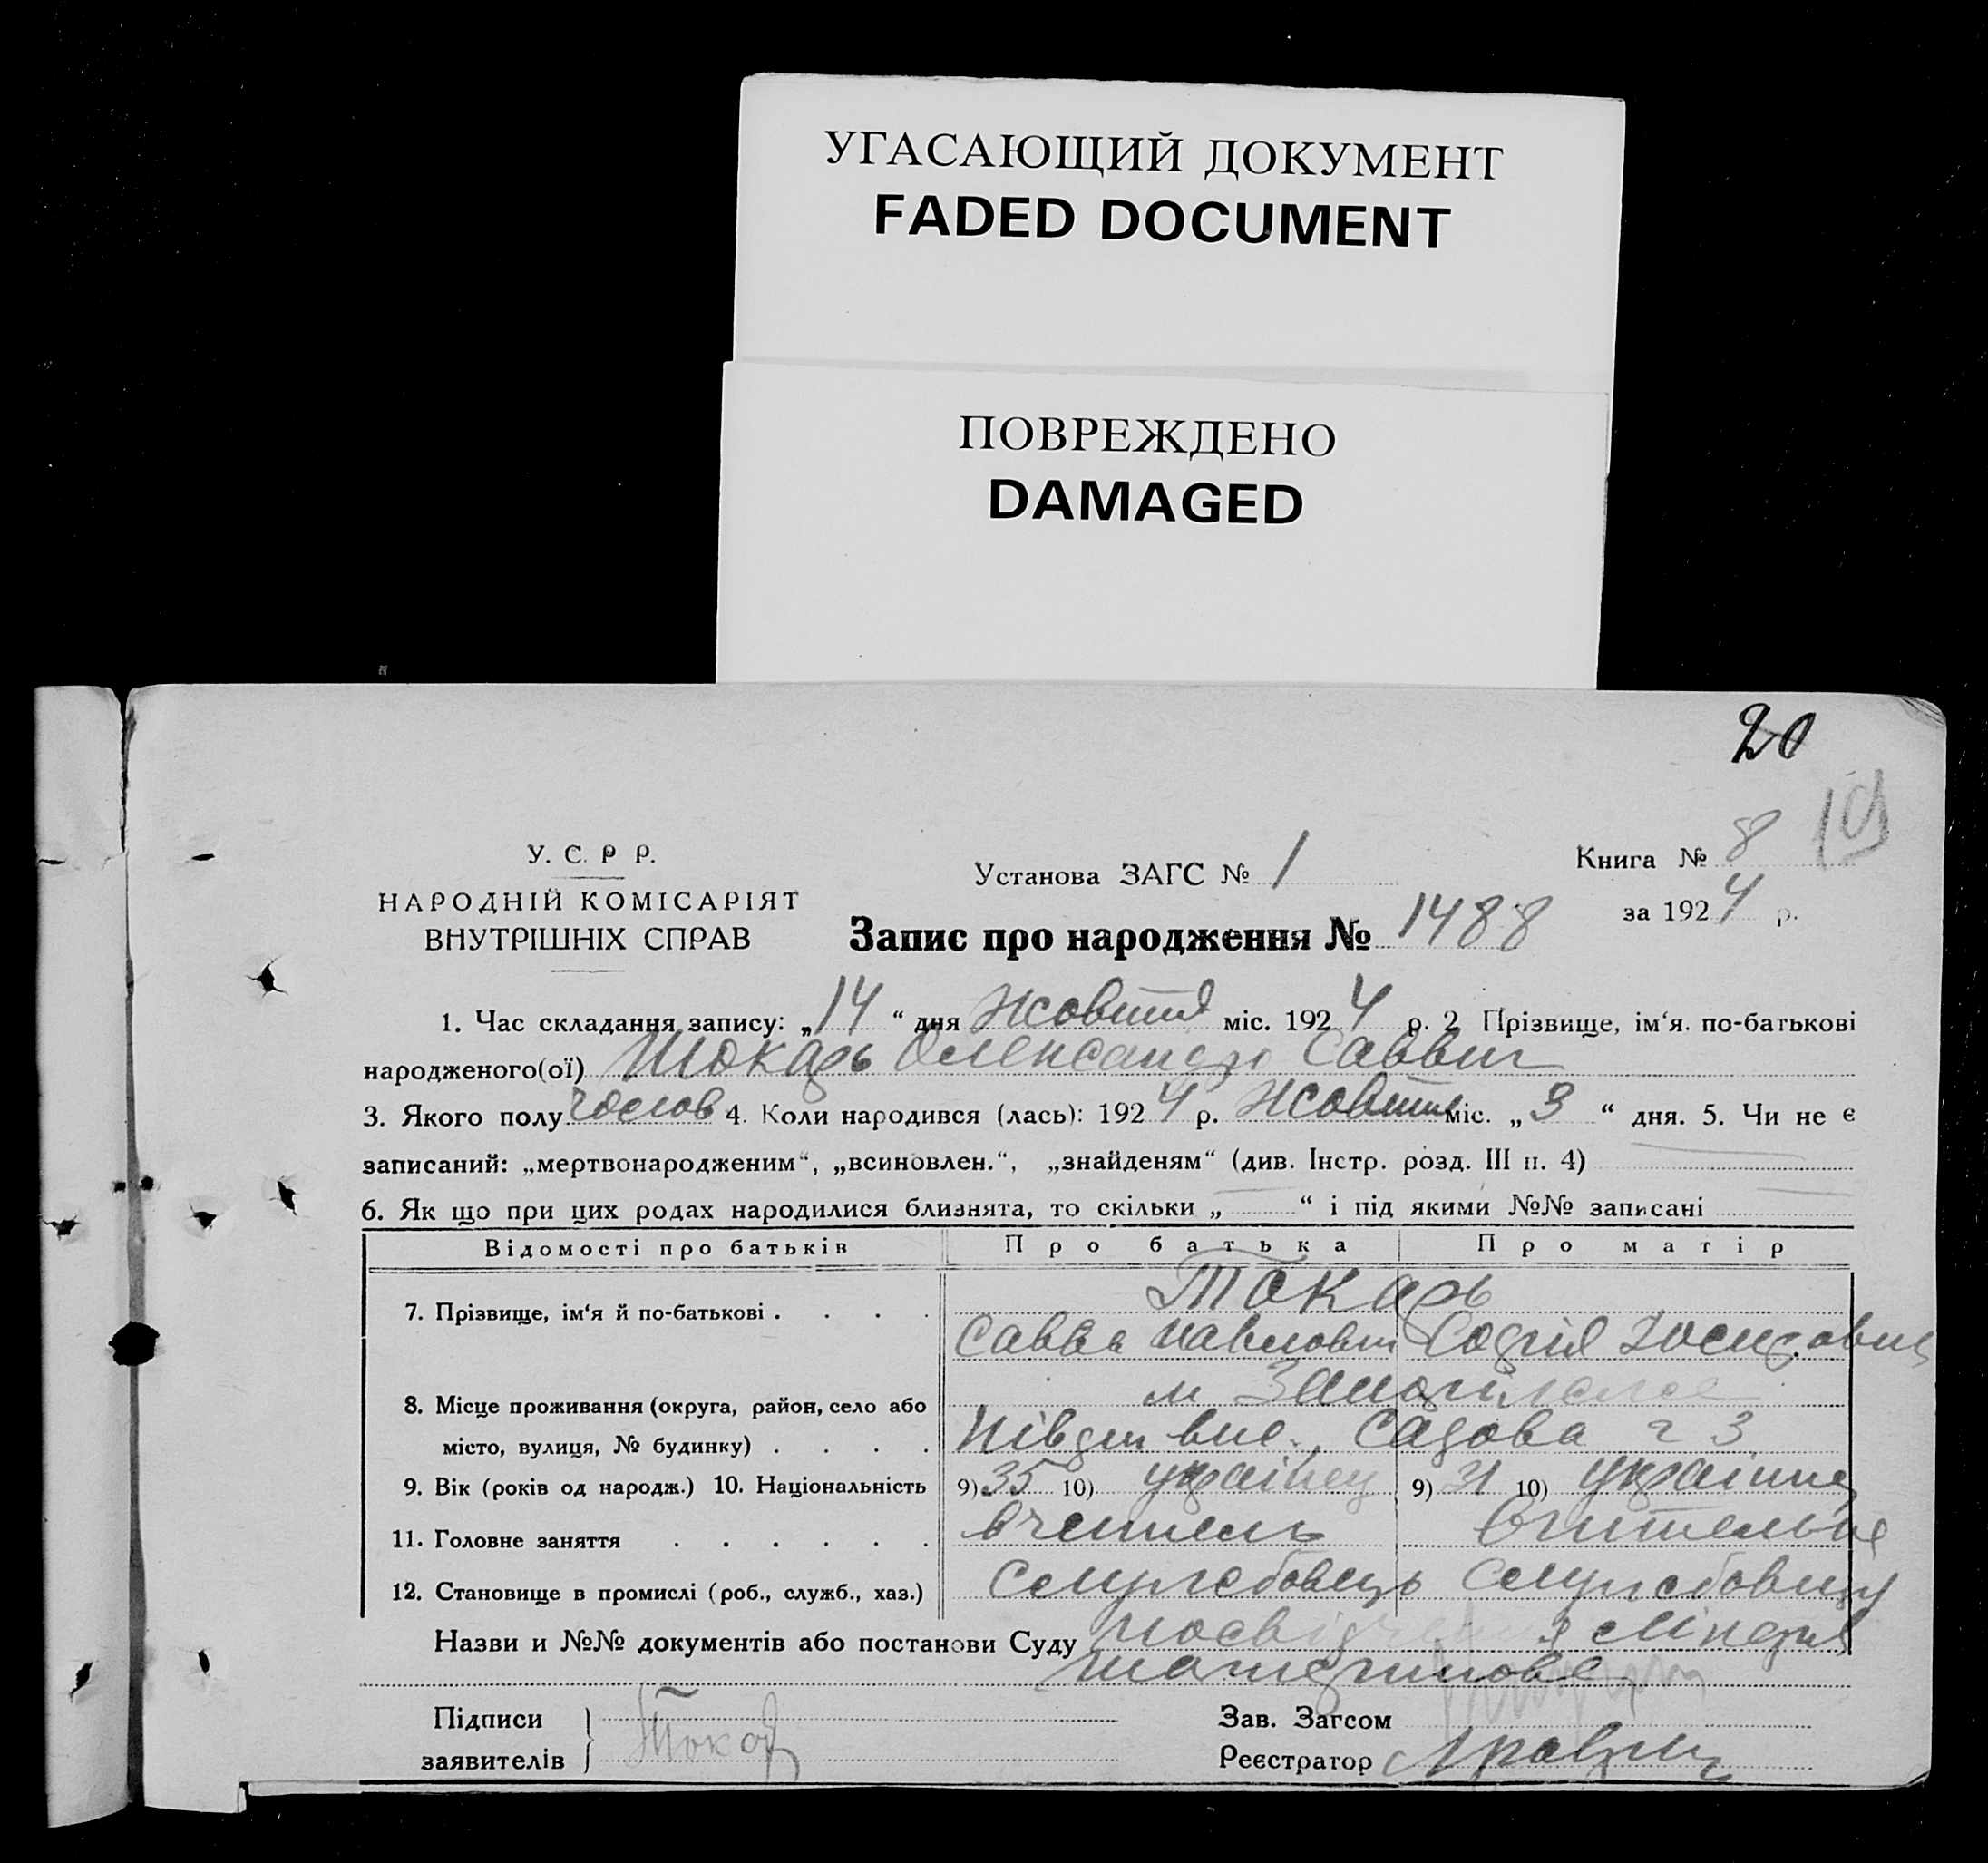 УГАСАЮЩИЙ ДОКУМЕНТ
FADED DOCUMENT
ПОВРЕЖДЕНО
DAMAGED
20
19
У. С. Р Р.
НАРОДНІЙ КОМІСАРІЯТ
ВНУТРІШНІХ СПРАВ
Установа ЗАГС № 1
Книга № 8
за 1924 р.
Запис про народження № 1488
1. Час складання запису: „14“ дня Жовтня міс. 1924 р. 2 Прізвище, ім‘я. по-батькові
народженого(ої) Токарь Олександр Саввич
3. Якого полу чолов 4. Коли народився (лась): 1924 р. Жовтня міс. „3“ дня. 5. Чи не є
записаний: „мертвонародженим“, „всиновлен.“, „знайденям“ (див. Інстр. розд. III п. 4)
6. Як що при цих родах народилися близнята, то скільки „ “ і під якими №№ записані
Відомості про батьків Про батька Про матір
7. Прізвище, ім‘я й по-батькові . . . . Токарь
Савва Павлович Софія Йосиповна
8. Місце проживання (округа, район, село або м
місто, вулиця, № будинку) . . . . Півден вис., Садова ч 3
9. Вік (років од народж.) 10. Національність 9) 35 10) українец 9) 31 10) українка
11. Головне заняття . . . . . . вчитель вчителька
12. Становище в промислі (роб., служб., хаз.) Службовець Службовиця
Назви и №№ документів або постанови Суду посвідчення
Підписи
заявителів Токар
Зав. Загсом
Реєстратор